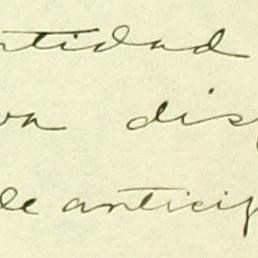 ntidad
va dis
de anticip